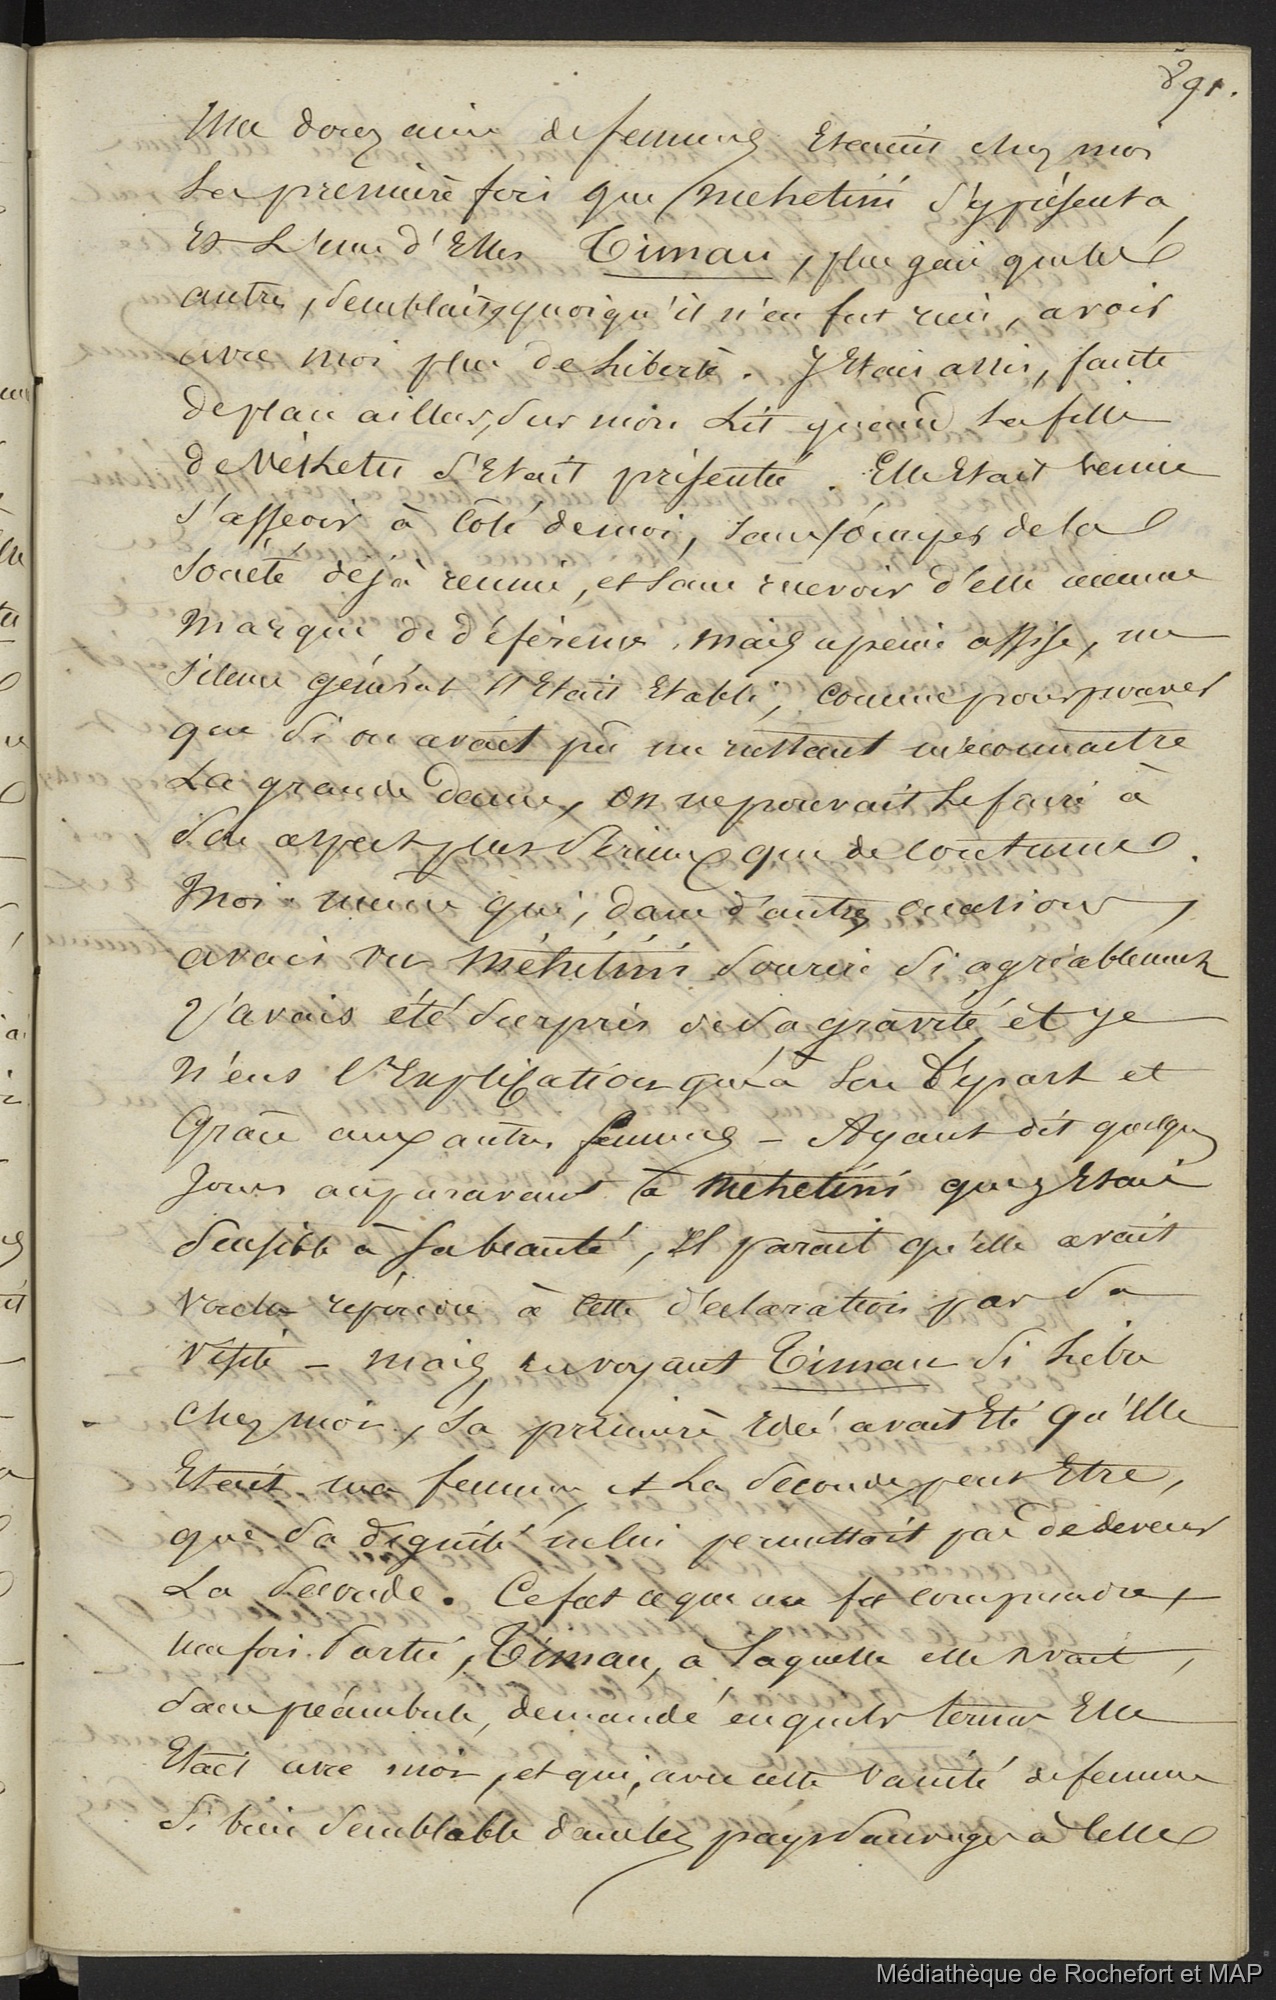 891.
Une douzaine de femmes Etaient chez moi
La première fois que Mehetini s'y présenta,
Et L'une d'Elles Timau, plus gaie que les
autres, semblait, quoiqu'il n'en fut rien, avoir
avec moi plus de Liberté. J'Etais assis, faute
de place ailleurs, sur mon Lit quand La fille
de Véketu s'Etait présentée. Elle Etait venue
s'asseoir à Côté de moi, sans s'occuper de la
Société déjà réunie, et sans recevoir d'elle aucune
Marque de déférence. Mais à peine assise, un
silence général s'Etait Etabli, comme pour prouver
que si on avait pu un instant méconnaitre
La grande dame, on ne pouvait Le faire à
son aspect plus sérieux que de coutume.
Moi-même qui, dans d'autres occasions,
avais vu Méhétini sourire si agréablement
J'avais été surpris de sa gravité et je
N'eus l'Explication qu'à son départ et
Grâce aux autres femmes - Ayant dit quelques
Jours auparavant à Mehetini que j'Etais
sensible à sa beauté, il parait qu'elle avait
voulu répondre à Cette déclaration par sa
visite - Mais, en voyant Timau si Libre
Chez moi, sa première idée avait Eté qu'Elle
Etait ma femme, et La Seconde, peut Etre,
que sa dignité ne lui permettait pas de devenir
La Seconde. Ce fut ce que me fit comprendre,
une fois Sortie, Timau, à Laquelle elle avait,
sans préambule, demandé en quels termes Elle
Etait avec moi, et qui, avec cette vanité de femme
si bien semblable dans les pays sauvages à celle
Médiathèque de Rochefort et MAP